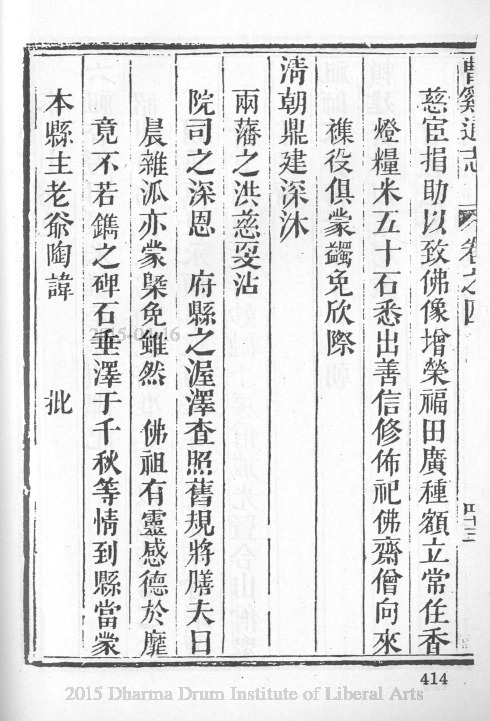 曹溪通志 卷之四 四十三
慈宦捐助以致佛像增榮福田廣種額立常住香
燈糧米五十石悉出善信修佈祀佛齋僧向來
襍役俱蒙蠲免欣際
清朝鼎建深沐
兩藩之洪慈叟沾
院司之深恩 府縣之渥澤查照舊規將膳夫日
晨雜派亦蒙槩免雖然 佛祖有靈感德於靡
竟不若鐫之碑石垂澤于千秋等情到縣當蒙
本縣主老爺陶諱 批
414
2015 Dharma Drum Institute of Liberal Arts